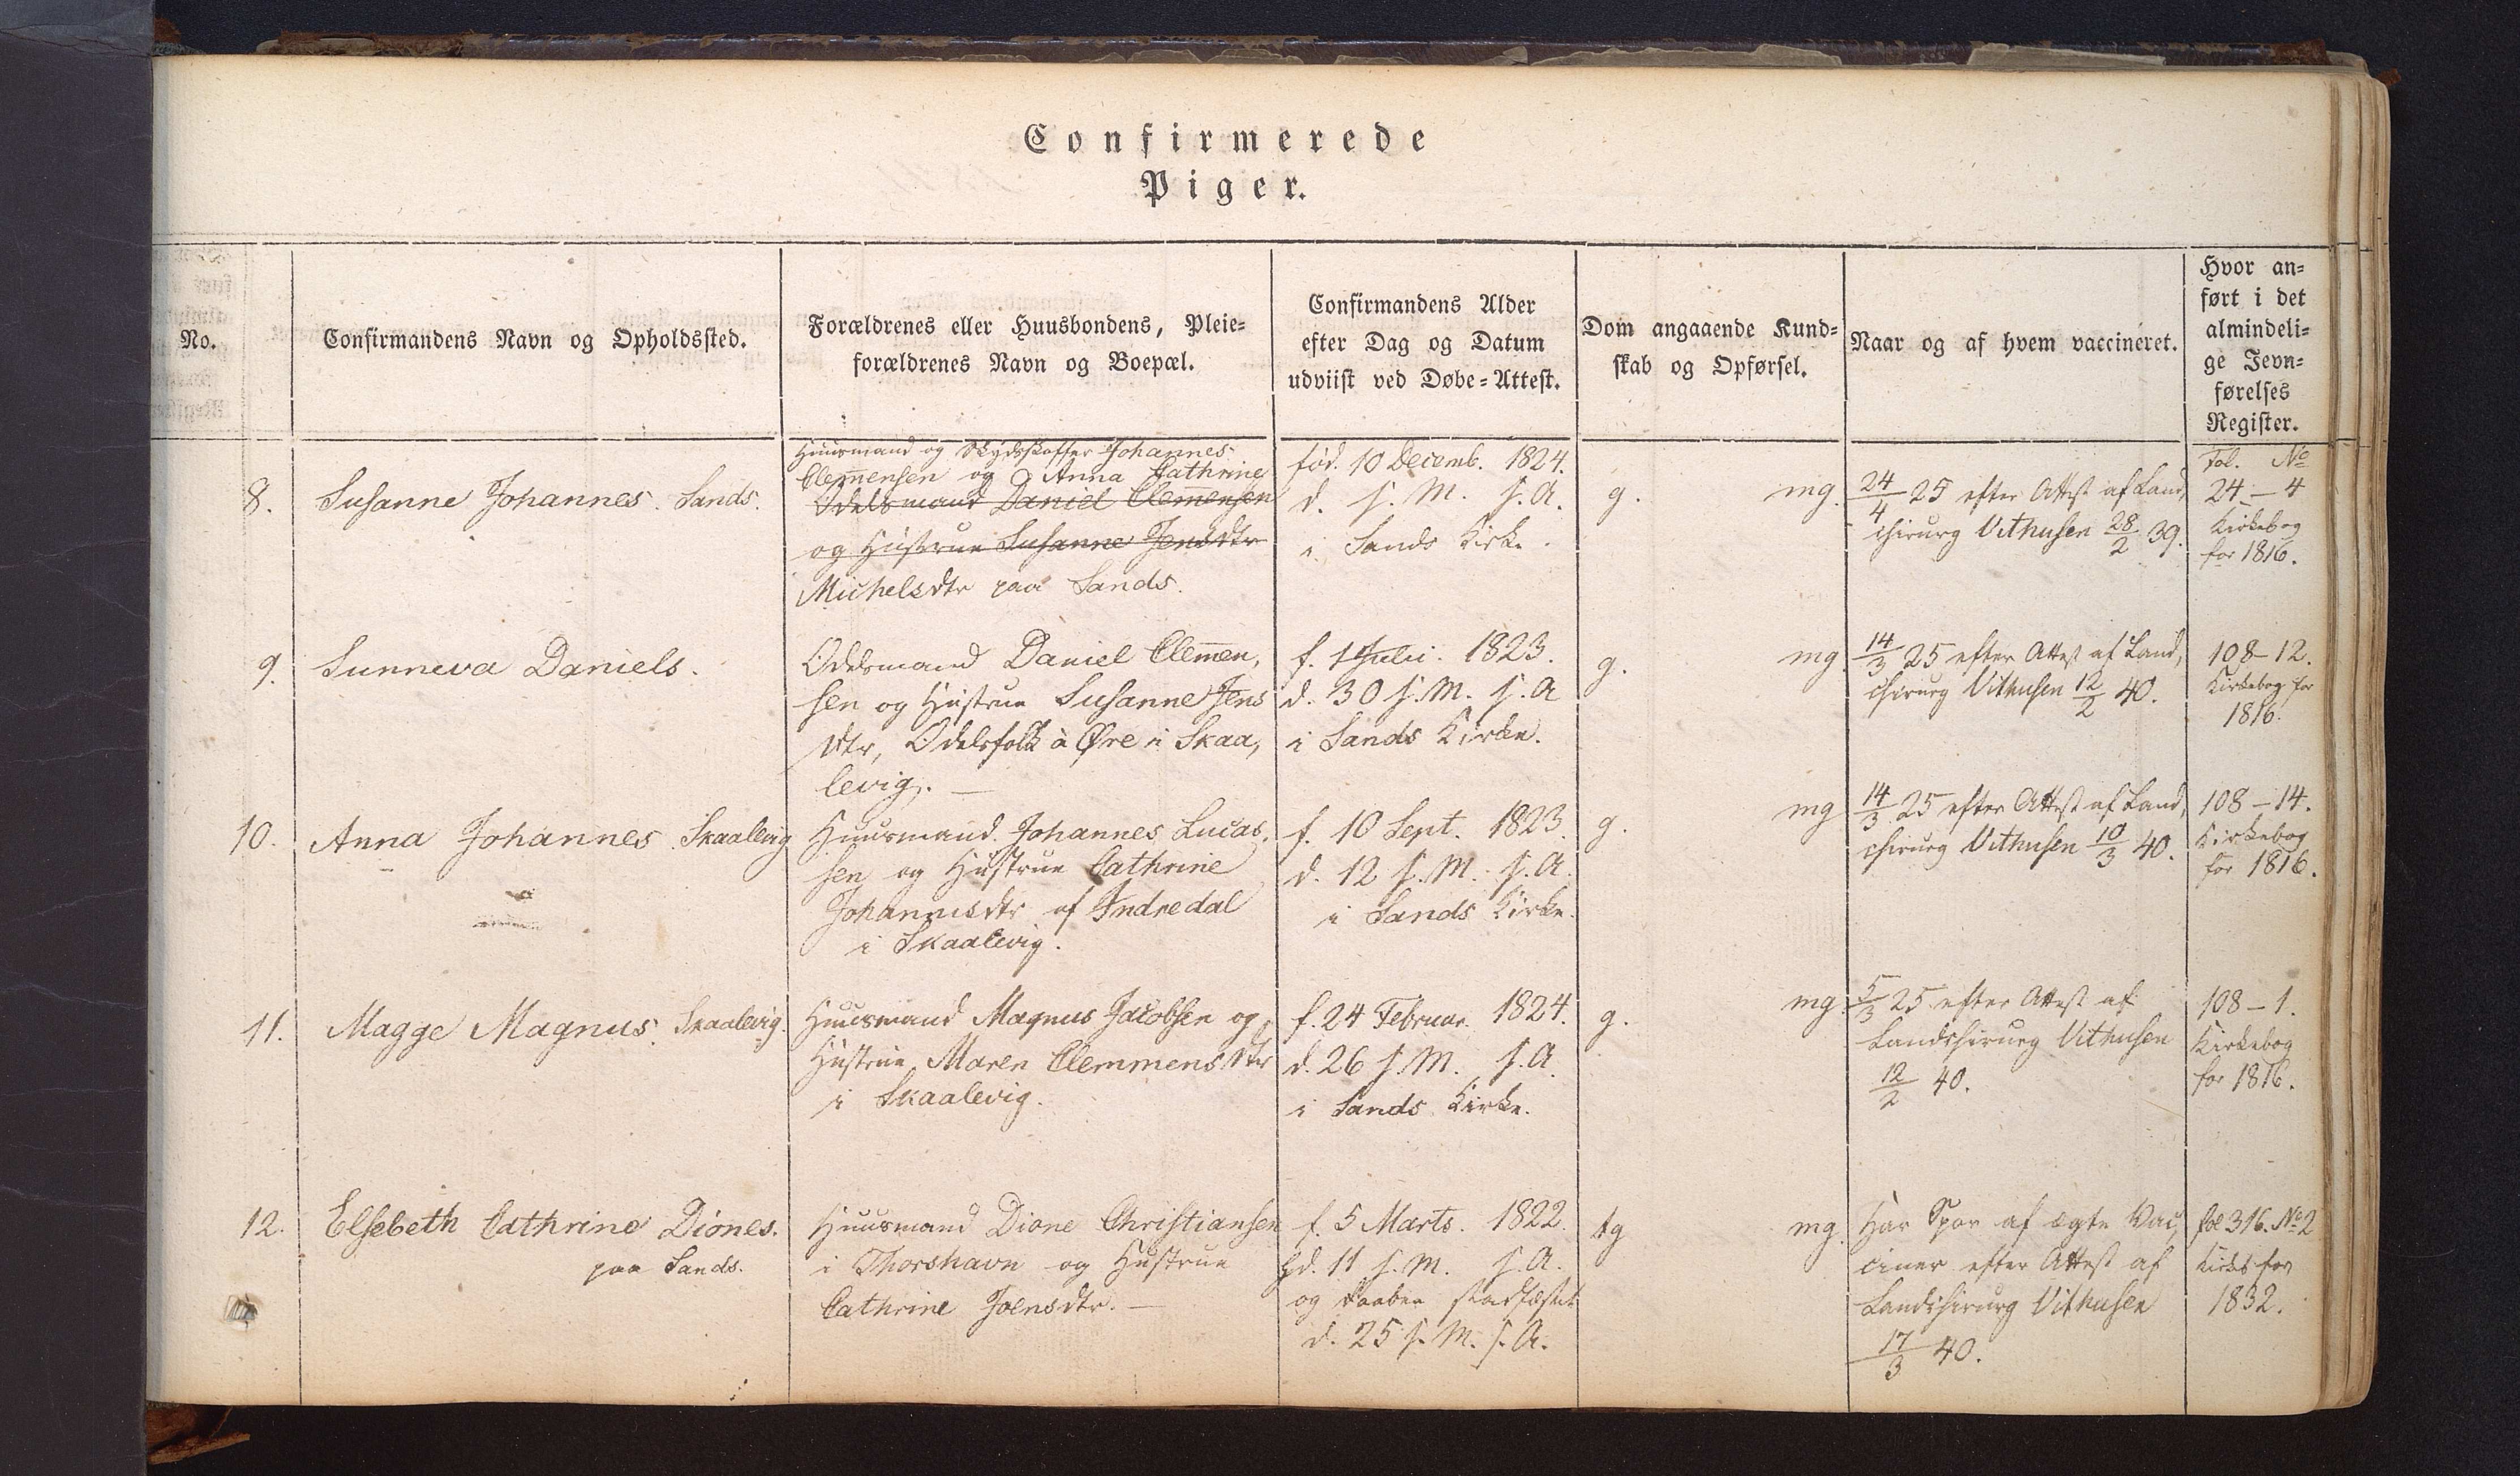 Confirmerede
Piger.
No.
Confirmandens Navn og Opholdssted.
Forældrenes eller Huusbondens, Pleie=
forældrenes Navn og Boepæl.
Confirmandens Alder
efter Dag og Datum
udviist ved Døbe=Attest.
Dom angaaende Kund=
skab og Opførsel.
Naar og af hvem vaccineret.
Hvor an=
ført i det
almindeli=
ge Jevn=
førelses
Register.
8.
Susanne Johannes. Sands.
Huusmand og Skydsskaffer Johannes
Clemensen og Anna Cathrine
Odelsmand Daniel Clemensen
og Hustrue Susanne Jensdtr
Michelsdtr paa Sands.
fød. 10 Decemb. 1824.
d. s. M. s. A.
i Sands Kirke.
g.
mg.
24/4 25 efter Attest af Land,
chirurg Vithusen 28/2 39.
Fol. No
24 – 4
Kirkebog
for 1816.
9.
Sunneva Daniels.
Odelsmand Daniel Clemen,
sen og Hustrue Susanne Jens
dtr, Odelsfolk à Øre i Skaa,
levig. —
f. 1 Julii. 1823.
d. 30 s. M. s. A
i Sands Kirke.
g.
mg
14/3 25 efter Attest af Land,
chirurg Vithusen 12/2 40.
108 – 12.
Kirkebog for
1816.
10.
Anna Johannes. Skaalevig
Huusmand Johannes Lucas,
sen og Hustrue Cathrine
Johannisdtr af Indredal
i Skaalevig.
f. 10 Sept. 1823.
d. 12 s. M. s. A.
i Sands Kirke.
g.
mg
14/3 25 efter Attest af Land,
chirurg Vithusen 10/3 40.
108 – 14.
Kirkebog
for 1816.
11.
Magge Magnus. Skaalevig.
Huusmand Magnus Jacobsen og
Hustrue Maren Clemmensdtr
i Skaalevig.
f. 24 Februar. 1824.
d. 26 s. M. s. A.
i Sands Kirke.
g.
mg.
5/3 25 efter Attest af
Landchirurg Vithusen
12/2 40.
108 – 1.
Kirkebog
for 1816.
12.
Elsebeth Cathrine Diones.
paa Sands.
Huusmand Dione Christiansen
i Thorshavn og Hustrue
Cathrine Joensdtr. —
f. 5 Marts. 1822.
hd. 11 s. M. s. A.
og Daaben stadfæstet
d. 25 s. M. s. A.
tg
mg.
Har Spor af ægte Vac,
ciner efter Attest af
Landchirurg Vithusen
17/3 40.
fol 316. No 2
Kirkb for
1832.